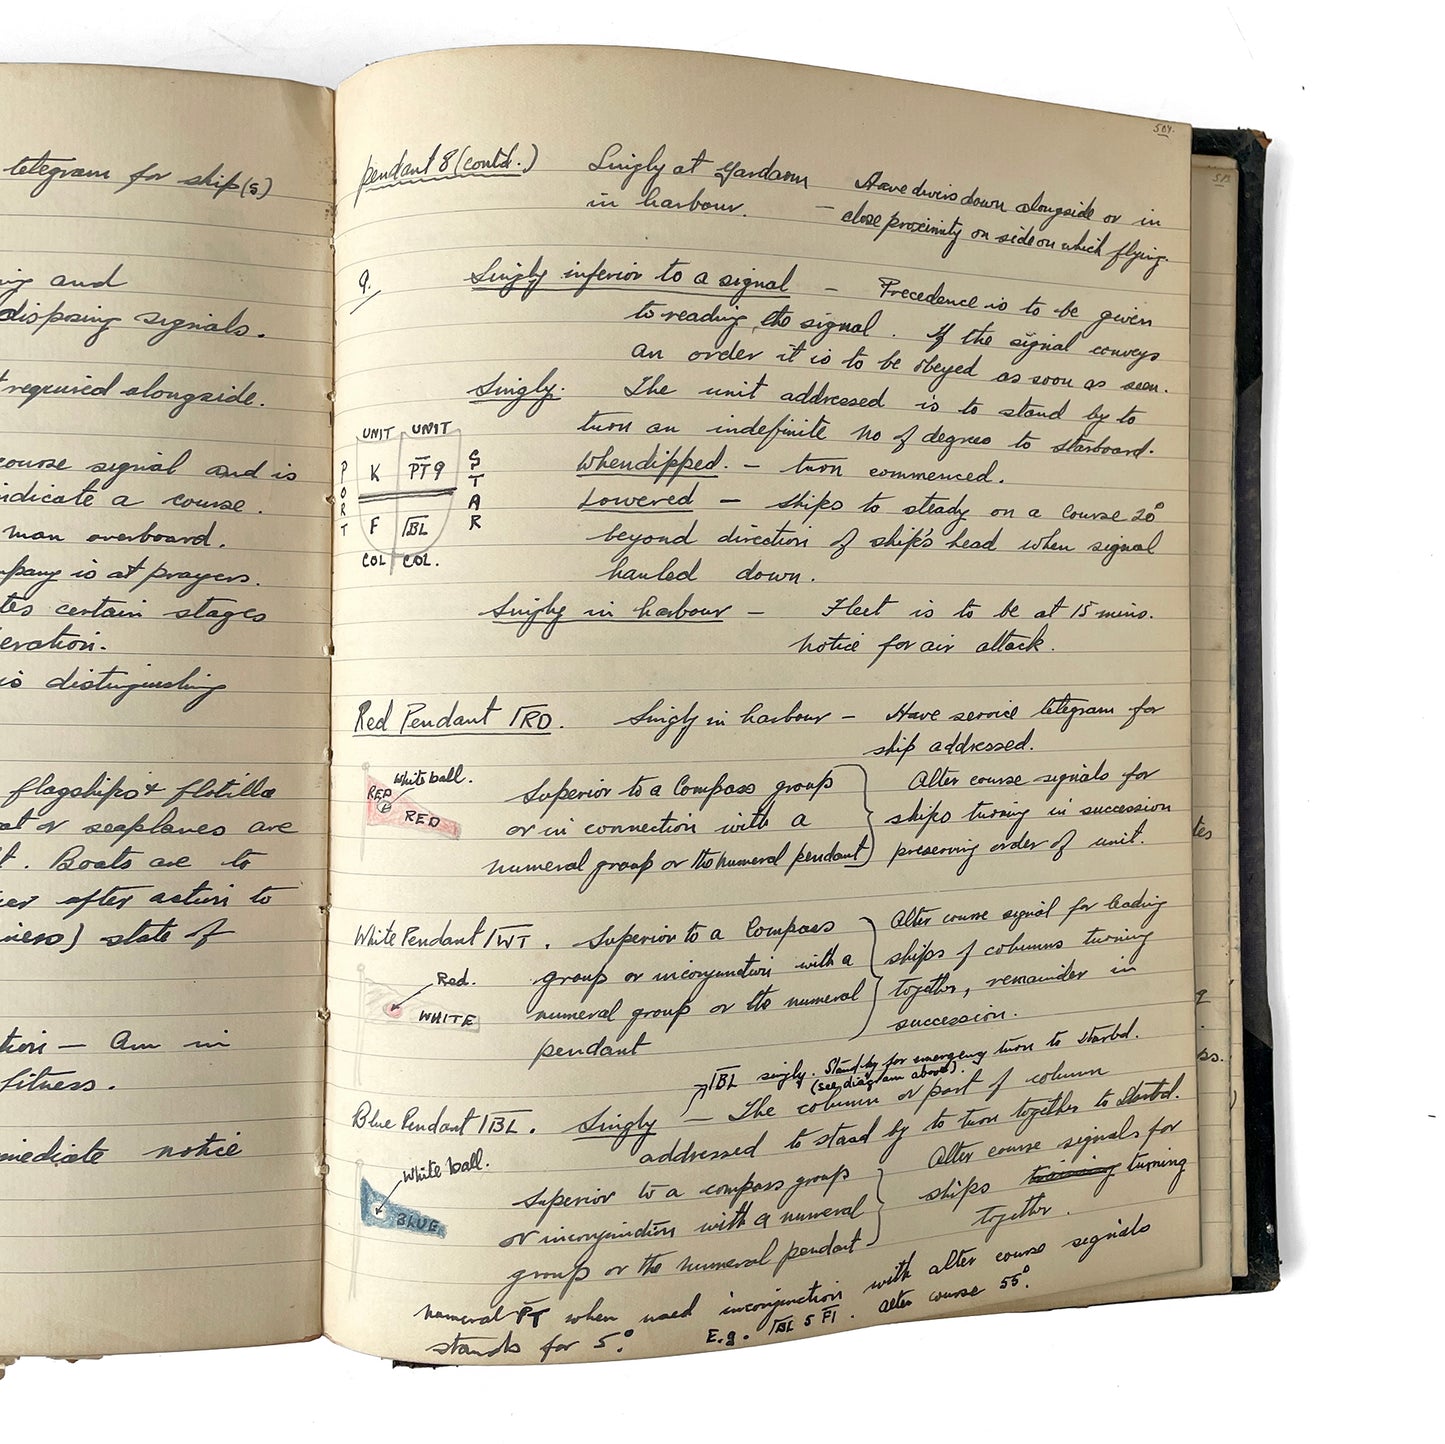 telegram for ship(s)
and
disposing signals.
required alongside.
course signal and is
indicate a course.
man overboard.
is at prayers.
certain stages
is distinguishing
flagships & flotilla
or seaplanes are
Boats are to
after action to
state of
— Am in
fitness.
notice
504.
pendant 8 (contd.) Singly at yardarm — Have divers down alongside or in
in harbour. close proximity on side on which flying.
9. Singly inferior to a signal — Precedence is to be given
to reading the signal. If the signal conveys
an order it is to be obeyed as soon as seen.
Singly: The unit addressed is to stand by to
turn an indefinite no of degrees to starboard.
When dipped. — turn commenced.
Lowered — Ships to steady on a course 20°
beyond direction of ship's head when signal
hauled down.
UNIT UNIT
PORT K PT9 STAR
F BL
COL COL.
Singly in harbour — Fleet is to be at 15 mins.
notice for air attack.
Red Pendant /RD. Singly in harbour — Have service telegram for
ship addressed.
White ball.
RED
RED
Superior to a Compass group
or in connection with a
numeral group or the numeral pendant
Alter course signals for
ships turning in succession
preserving order of unit.
White Pendant /WT. Superior to a Compass
group or inconjunction with a
numeral group or the numeral
pendant
Alter course signal for leading
ships of columns turning
together, remainder in
succession.
Red.
WHITE
/BL singly. Stand-by for emergency turn to Starbd.
(see diagram above).
Blue Pendant /BL. Singly — The column or part of column
addressed to stand by to turn together to Starbd.
White ball.
BLUE
Superior to a compass group
or inconjunction with a numeral
group or the numeral pendant
Alter course signals for
ships turning
together.
numeral PT when used inconjunction with alter course signals
stands for 5°. E.g. /BL 5 F1. alter course 55°.